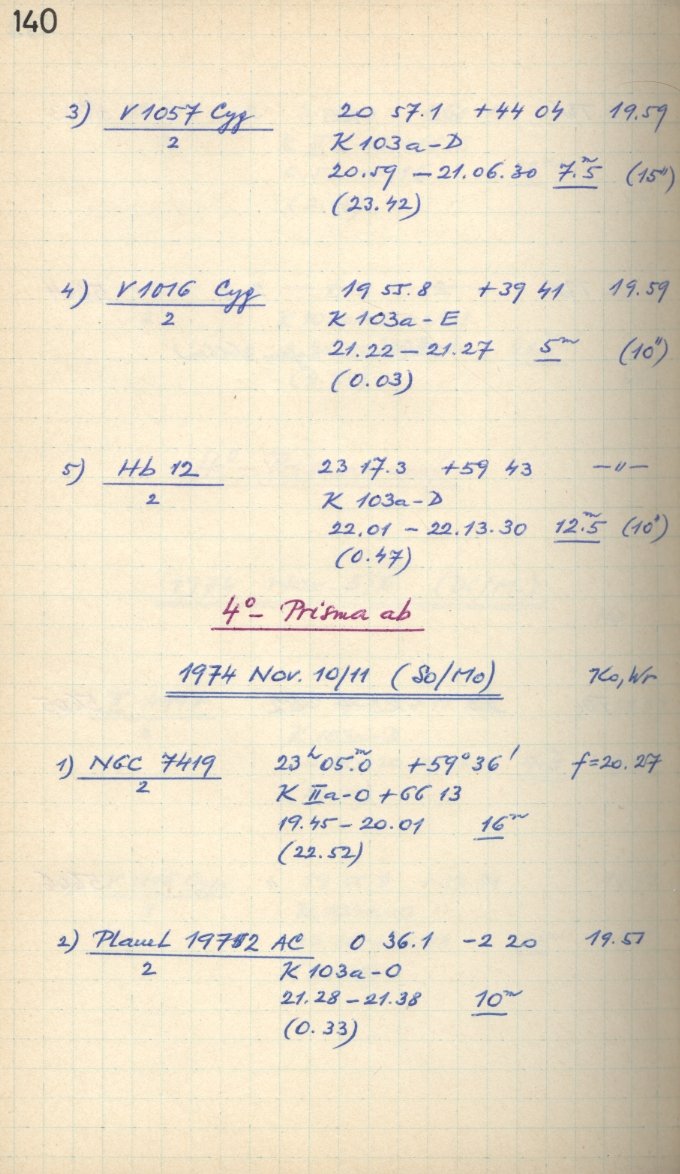 140
3) V 1057 Cyg 20 57.1 +44 04 19.59
2 K 103a-D
20.59 – 21.06.30 7.ᵐ5 (15")
(23.42)
4) V 1016 Cyg 19 55.8 +39 41 19.59
2 K 103a-E
21.22 – 21.27 5ᵐ (10")
(0.03)
5) Hb 12 23 17.3 +59 43 –"–
2 K 103a-D
22.01 – 22.13.30 12.ᵐ5 (10")
(0.47)
4°- Prisma ab
1974 Nov. 10/11 (So/Mo) Ko, Wr
1) NGC 7419 23ʰ05.ᵐ0 +59°36' f=20.27
2 K IIa-O +GG 13
19.45 – 20.01 16ᵐ
(22.52)
2) Planet 1972 AC 0 36.1 -2 20 19.57
2 K 103a-O
21.28 – 21.38 10ᵐ
(0.33)